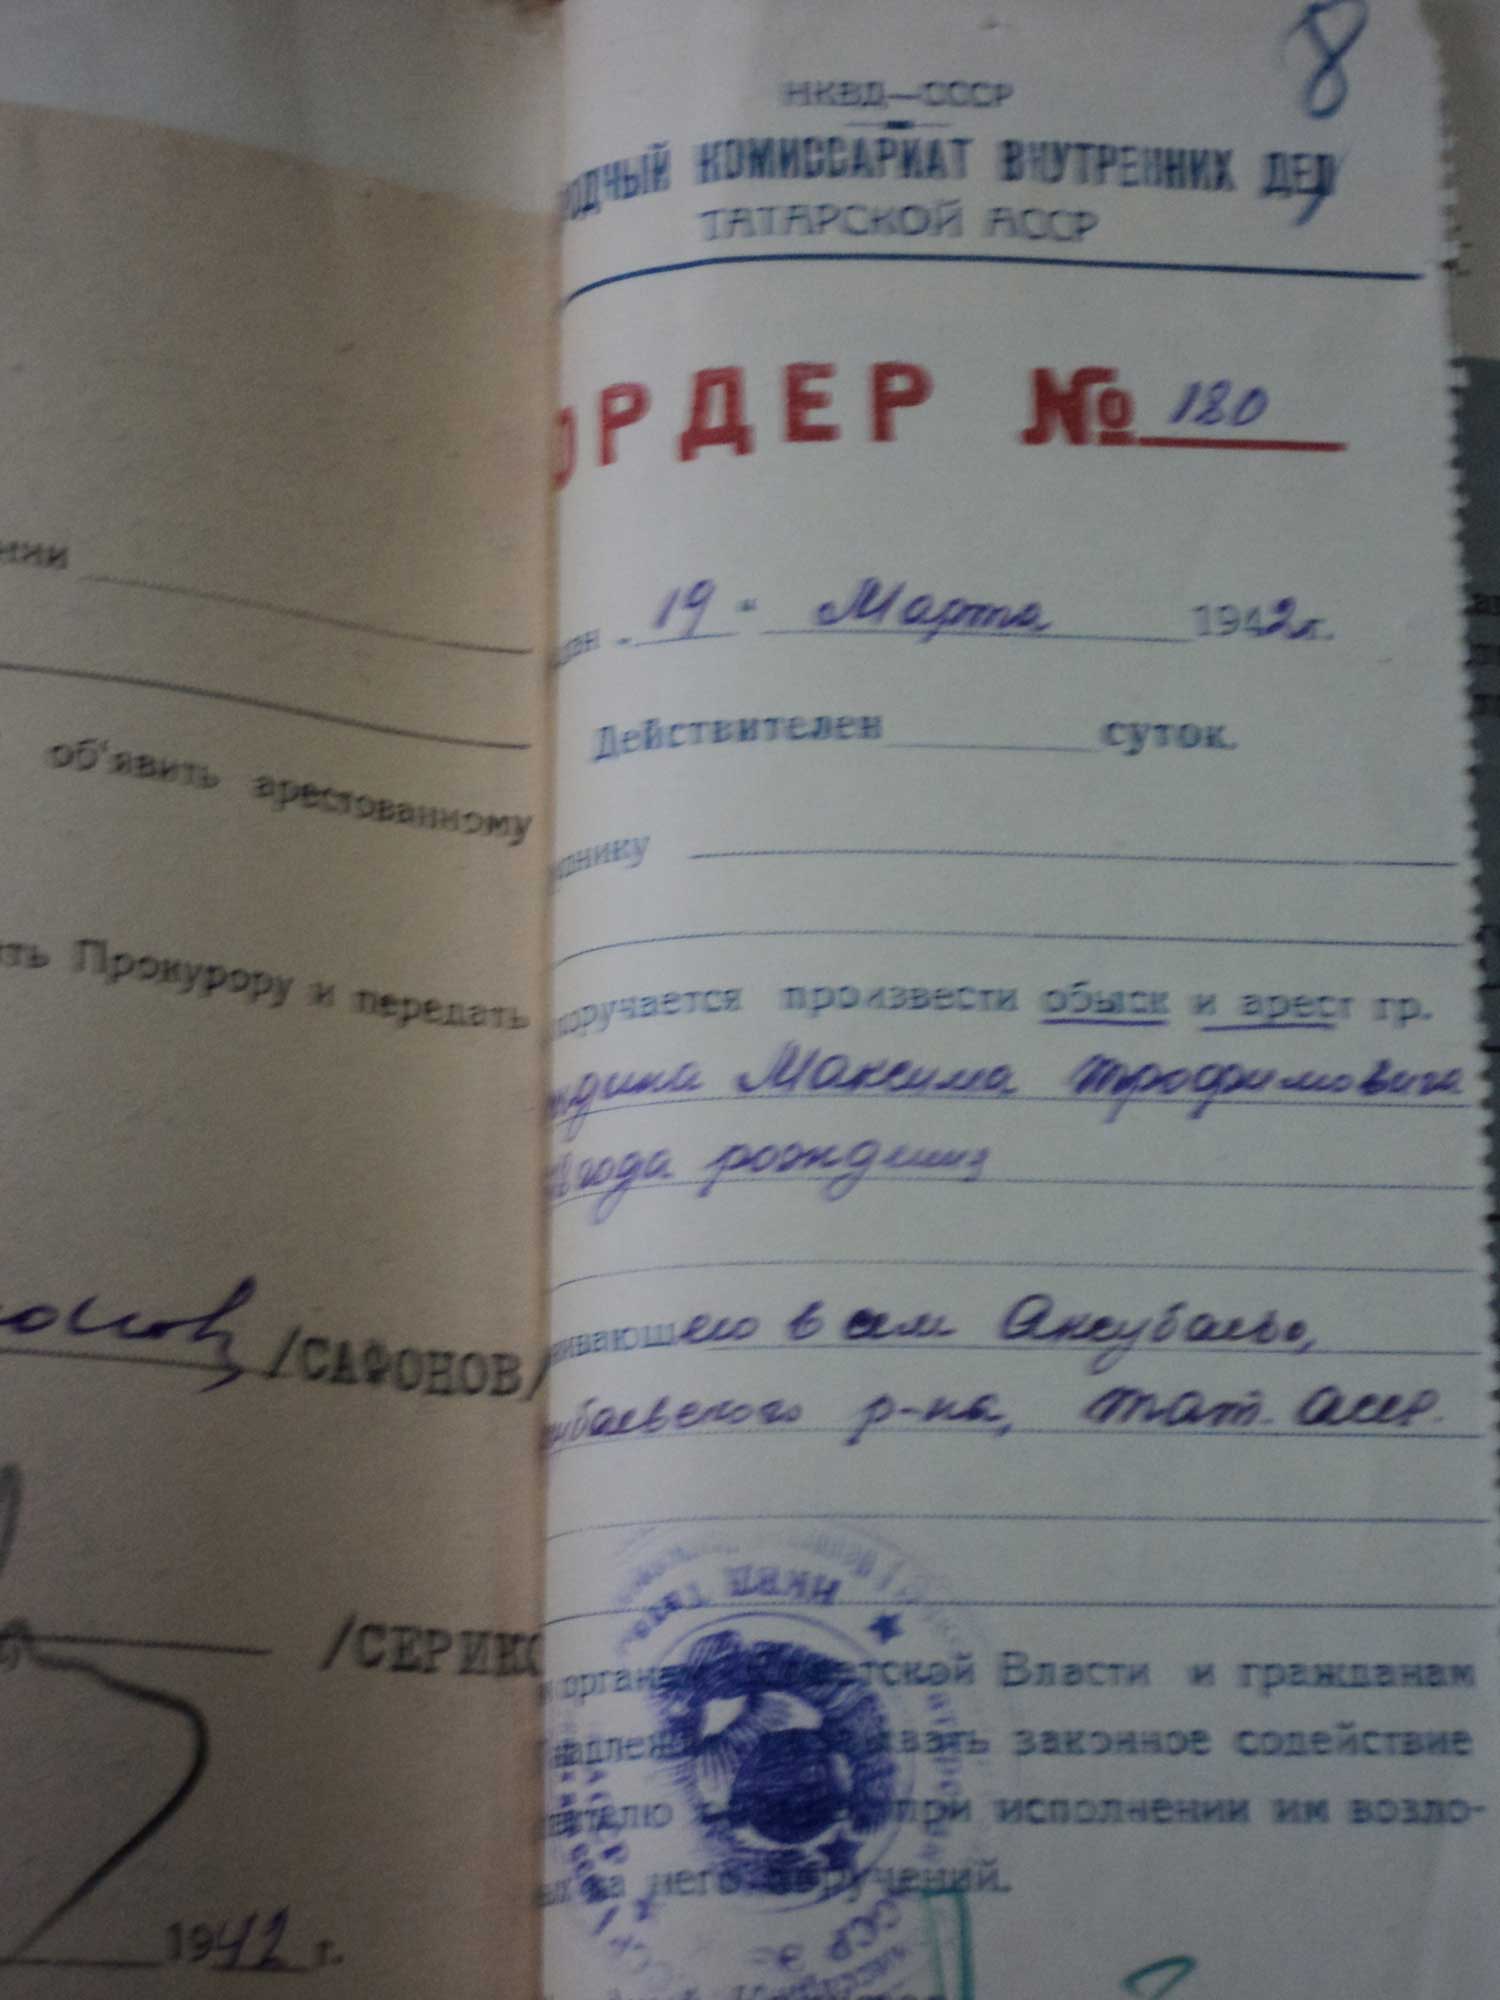 нии
об'явить арестованному
ть Прокурору и передать
/САФОНОВ/
/СЕРИКО
1942 г.
8
НКВД—СССР
РОДНЫЙ КОМИССАРИАТ ВНУТРЕННИХ ДЕЛ
ТАТАРСКОЙ АССР
ОРДЕР № 180
дан „19“ Марта 1942 г.
Действителен суток.
днику
поручается произвести обыск и арест гр.
ндина Максима Трофимовича
года рождения
ивающего в Аксубаево,
убаевского р-на, Тат. АССР.
органам Советской Власти и гражданам
надлежит законное содействие
при исполнении им возло-
ных на него поручений.